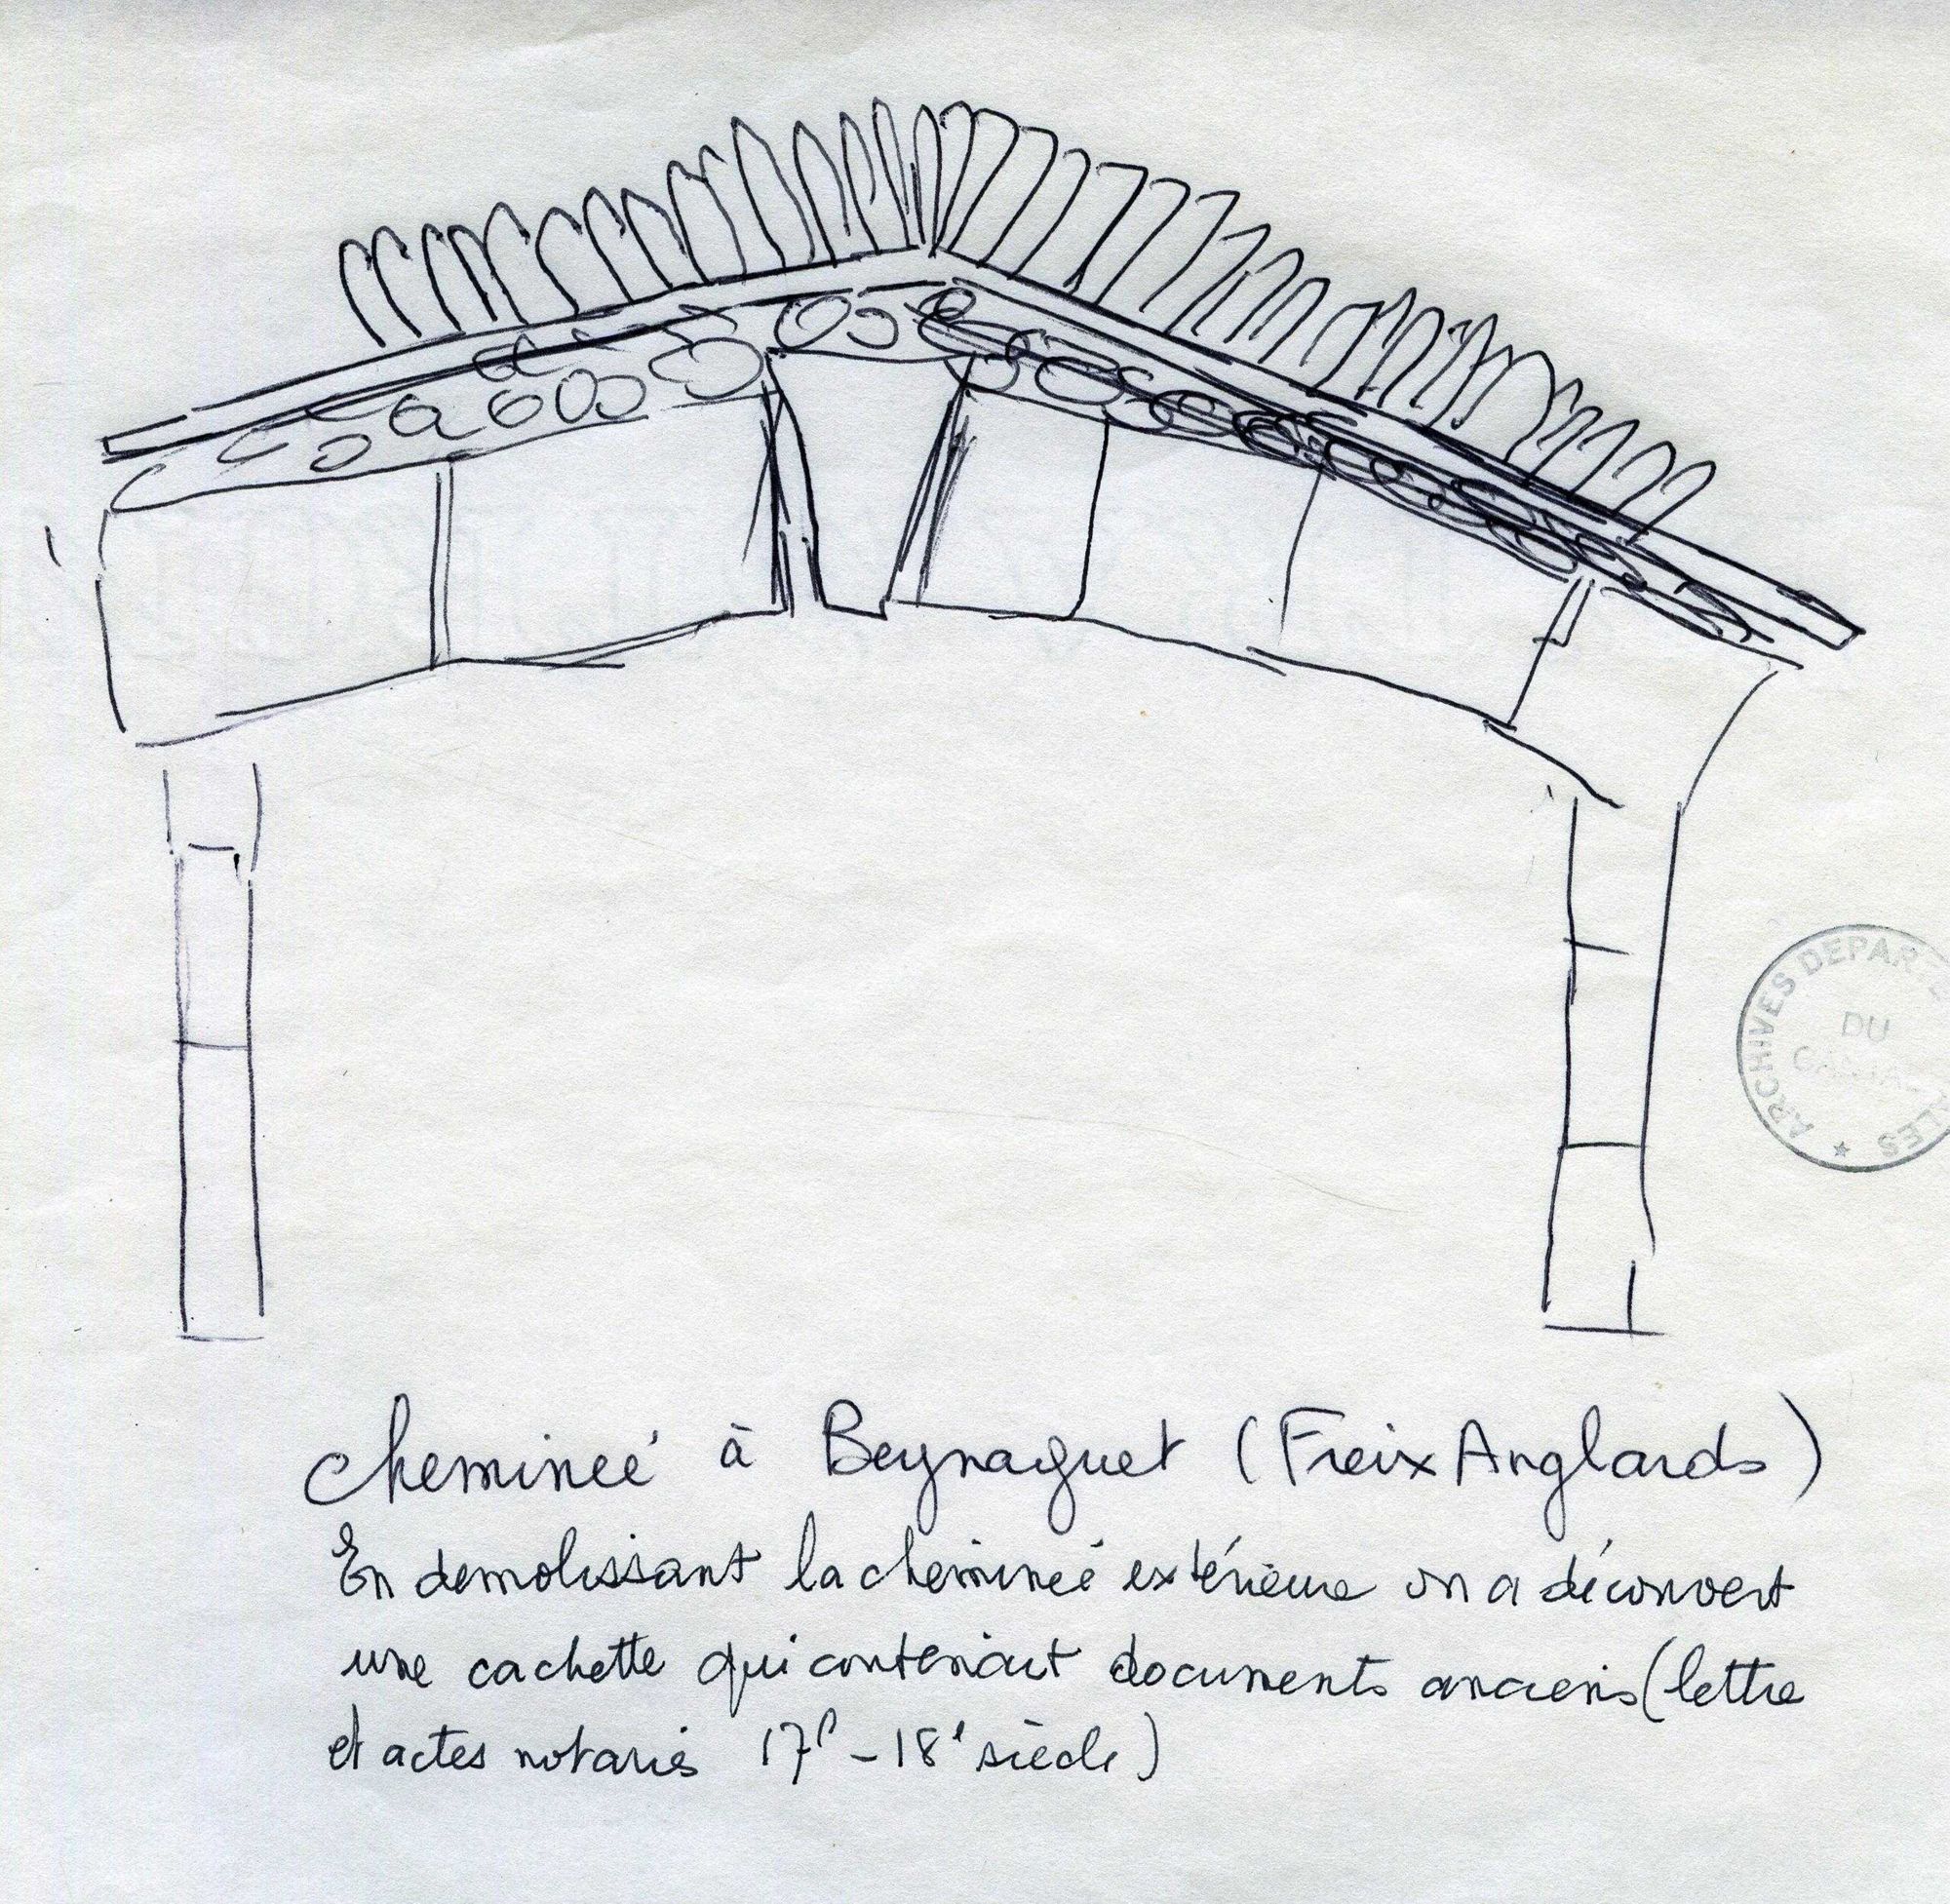 ARCHIVES DEPAR
DU
LES
cheminée à Beynaguet (Freix Anglards)
En demolissant la cheminée extérieure on a découvert
une cachette qui contenait documents anciens (lettre
et actes notariés 17e - 18e siècle)